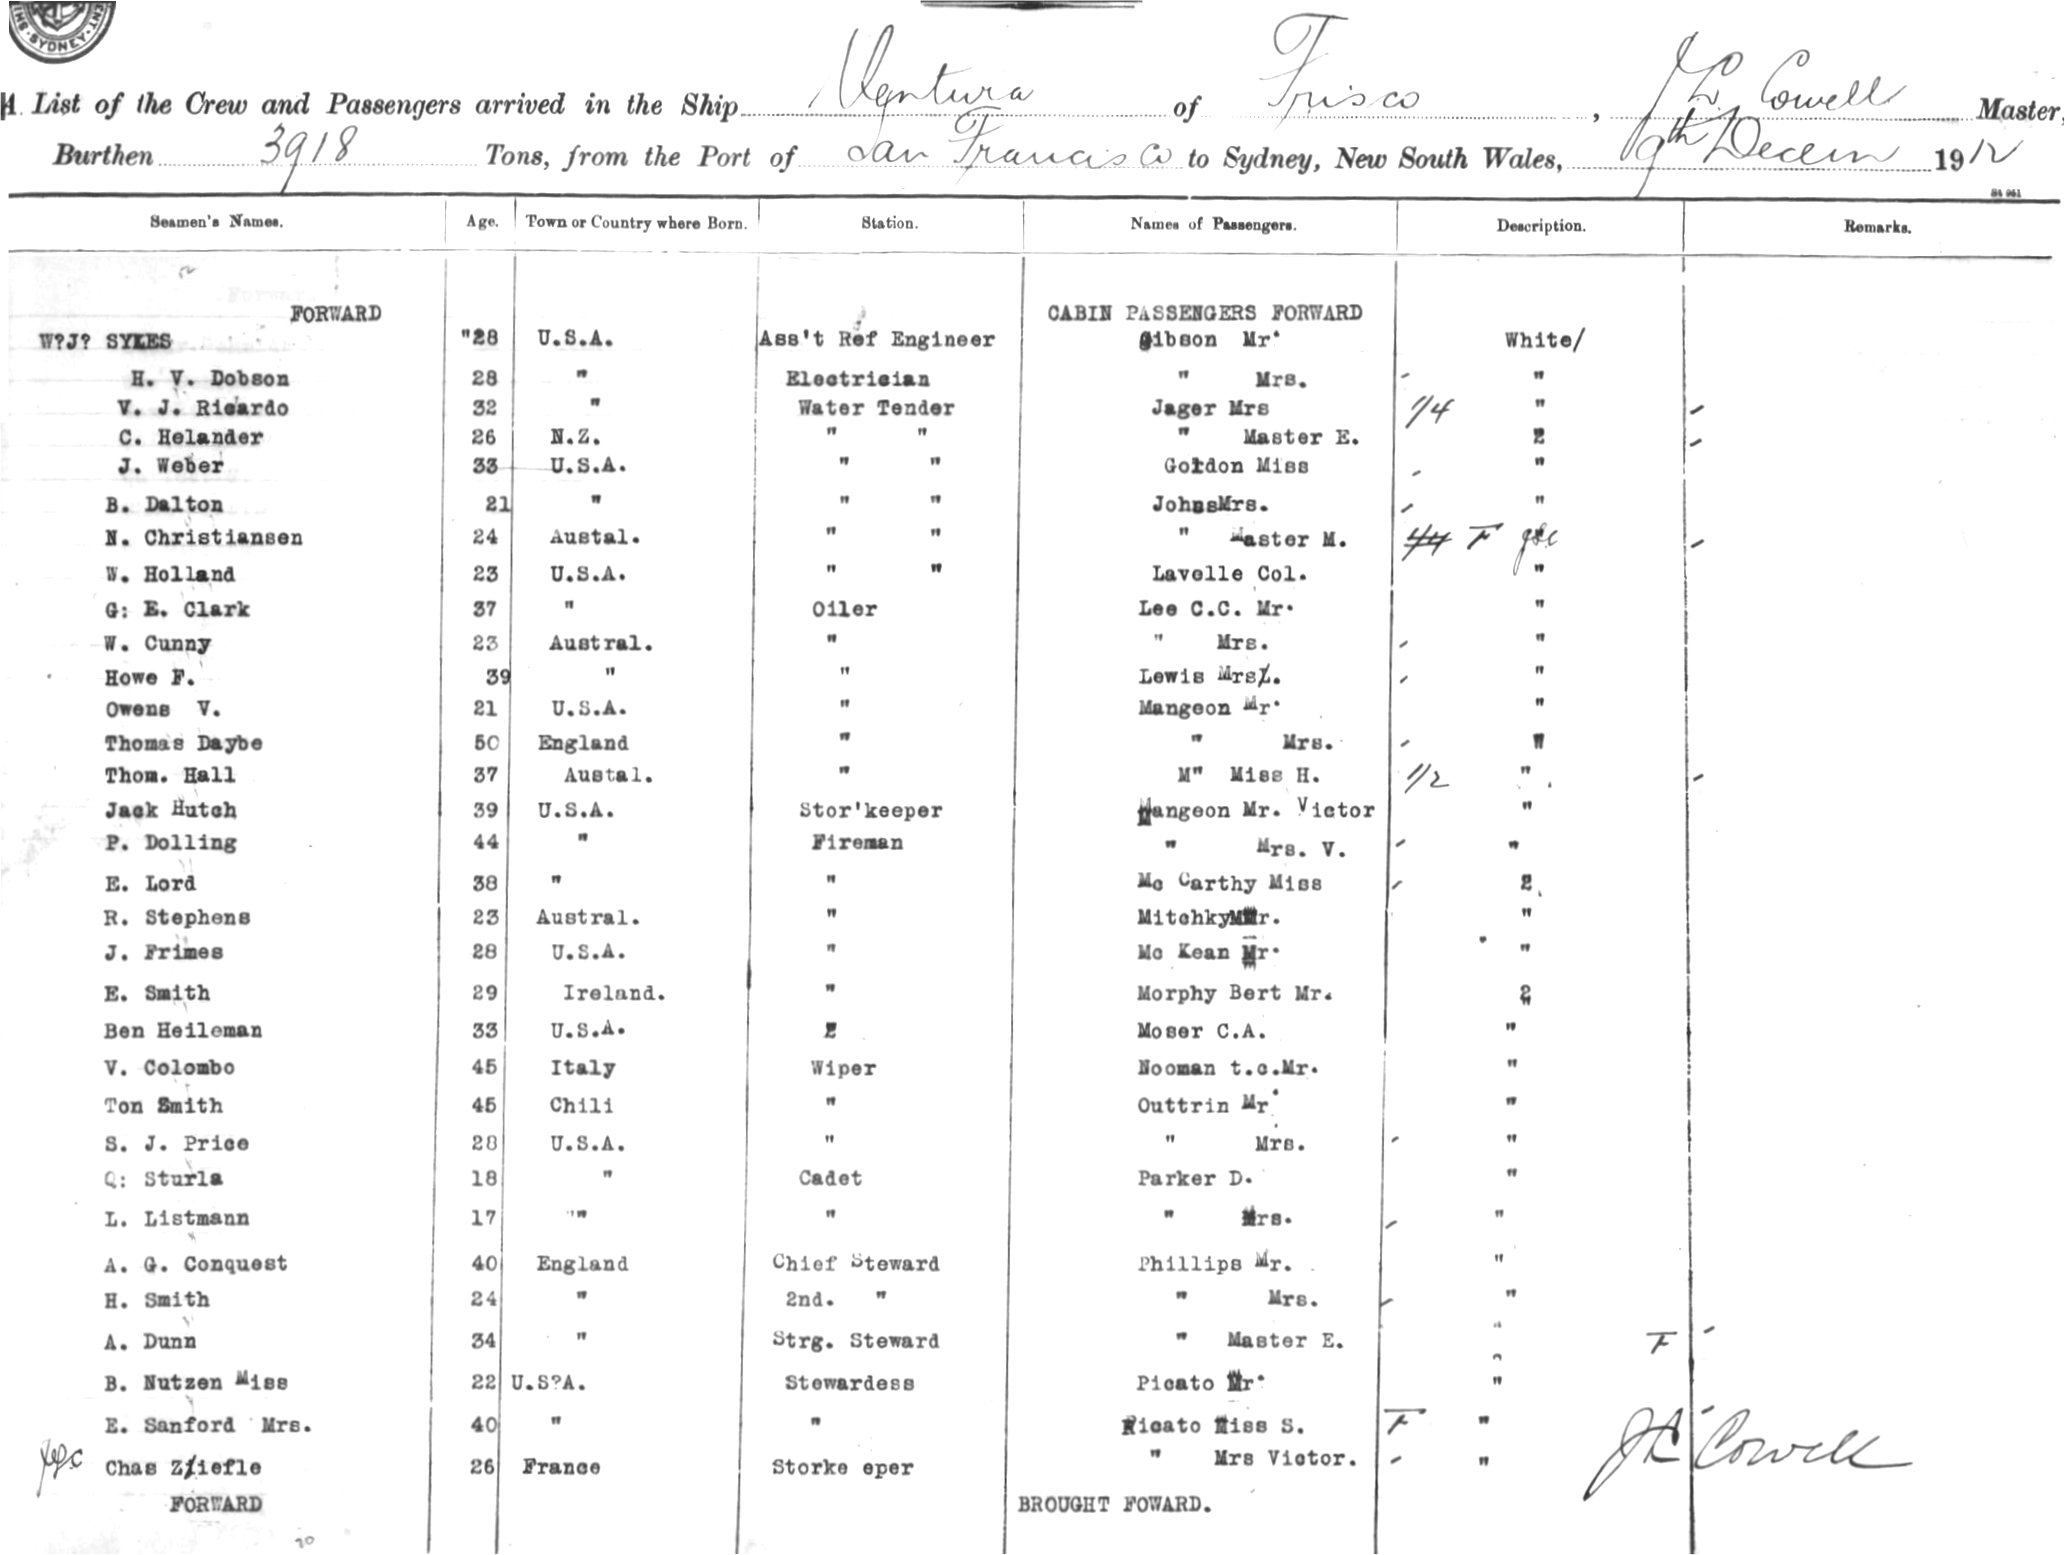 SYDNEY
A List of the Crew and Passengers arrived in the Ship Ventura of Frisco, J L Cowell Master,
Burthen 3918 Tons, from the Port of San Francisco to Sydney, New South Wales, 9th Decem 1912
Seamen's Names. Age. Town or Country where Born. Station. Names of Passengers. Description. Remarks.
FORWARD CABIN PASSENGERS FORWARD
W?J? SYKES "28 U.S.A. Ass't Ref Engineer Gibson Mr. White/
H. V. Dobson 28 " Electrician " Mrs. "
V. J. Ricardo 32 " Water Tender Jager Mrs 1/4 "
C. Helander 26 N.Z. " " " Master E. 2
J. Weber 33 U.S.A. " " Gordon Miss "
B. Dalton 21 " " " JohnsMrs. "
N. Christiansen 24 Austal. " " " Master M. F
W. Holland 23 U.S.A. " " Lavelle Col. "
G: E. Clark 37 " Oiler Lee C.C. Mr. "
W. Cunny 23 Austral. " " Mrs. "
Howe F. 39 " " Lewis Mrs. "
Owens V. 21 U.S.A. " Mangeon Mr. "
Thomas Daybe 50 England " " Mrs. "
Thom. Hall 37 Austal. " M" Miss H. 1/2 "
Jack Hutch 39 U.S.A. Stor'keeper Mangeon Mr. Victor "
P. Dolling 44 " Fireman " Mrs. V. "
E. Lord 38 " " Mc Carthy Miss 2
R. Stephens 23 Austral. " Mitchky Mr. "
J. Frimes 28 U.S.A. " Mc Kean Mr. "
E. Smith 29 Ireland. " Morphy Bert Mr. 2
Ben Heileman 33 U.S.A. 2 Moser C.A. "
V. Colombo 45 Italy Wiper Nooman t.c.Mr. "
Ton Smith 45 Chili " Outtrin Mr. "
S. J. Price 28 U.S.A. " " Mrs. "
Q: Sturla 18 " Cadet Parker D. "
L. Listmann 17 "" " " Mrs. "
A. G. Conquest 40 England Chief Steward Phillips Mr. "
H. Smith 24 " 2nd. " " Mrs. "
A. Dunn 34 " Strg. Steward " Master E. " F
B. Nutzen Miss 22 U.S?A. Stewardess Picato Mr. "
E. Sanford Mrs. 40 " " Picato Miss S. F "
Chas Ziefle 26 France Storke eper " Mrs Victor. " J L Cowell
FORWARD BROUGHT FOWARD.